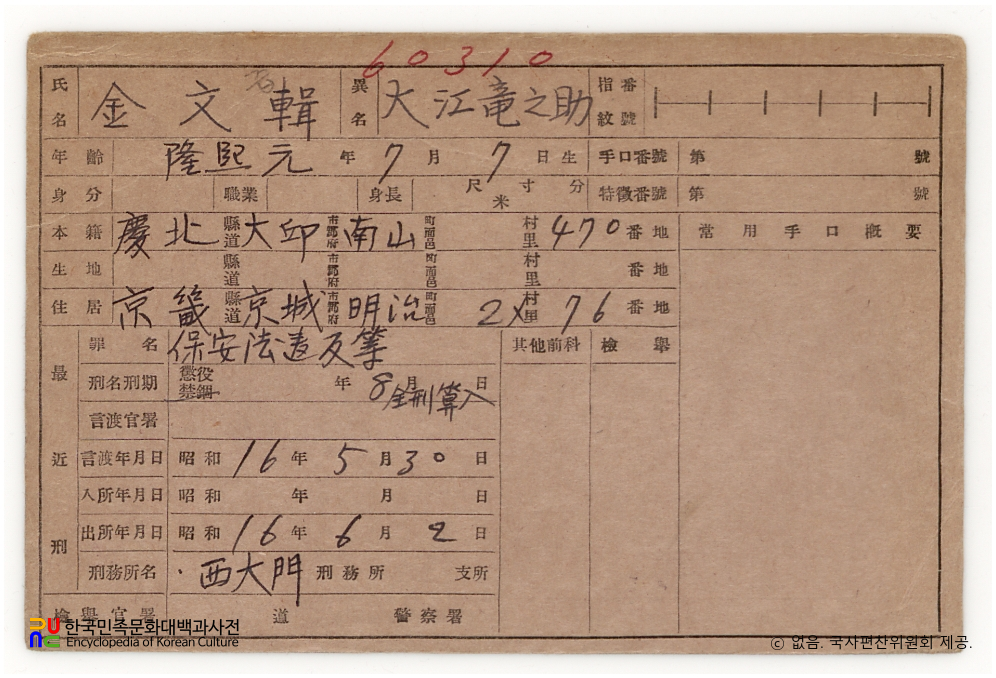 60310
氏名 金文輯 異名 大江竜之助 指紋番號
年齡 隆熙元年7月7日生 手口番號 第 號
身分 職業 身長 尺寸分 米 特徵番號 第 號
本籍 慶北縣道大邱市郡府南山町面邑 村里470番地 常用手口槪要
生地 縣道 市郡府 町面邑 村里 番地
住居 京畿縣道京城市郡府明治町面邑 2 村里 76番地
最近刑
罪名 保安法違反等 其他前科 檢擧
刑名刑期 懲役 禁錮 年8月日 全刑算入
言渡官署
言渡年月日 昭和16年5月30日
入所年月日 昭和 年 月 日
出所年月日 昭和16年6月2日
刑務所名 西大門刑務所 支所
檢擧官署 道 警察署
한국민족문화대백과사전
Encyclopedia of Korean Culture
ⓒ 없음. 국사편찬위원회 제공.